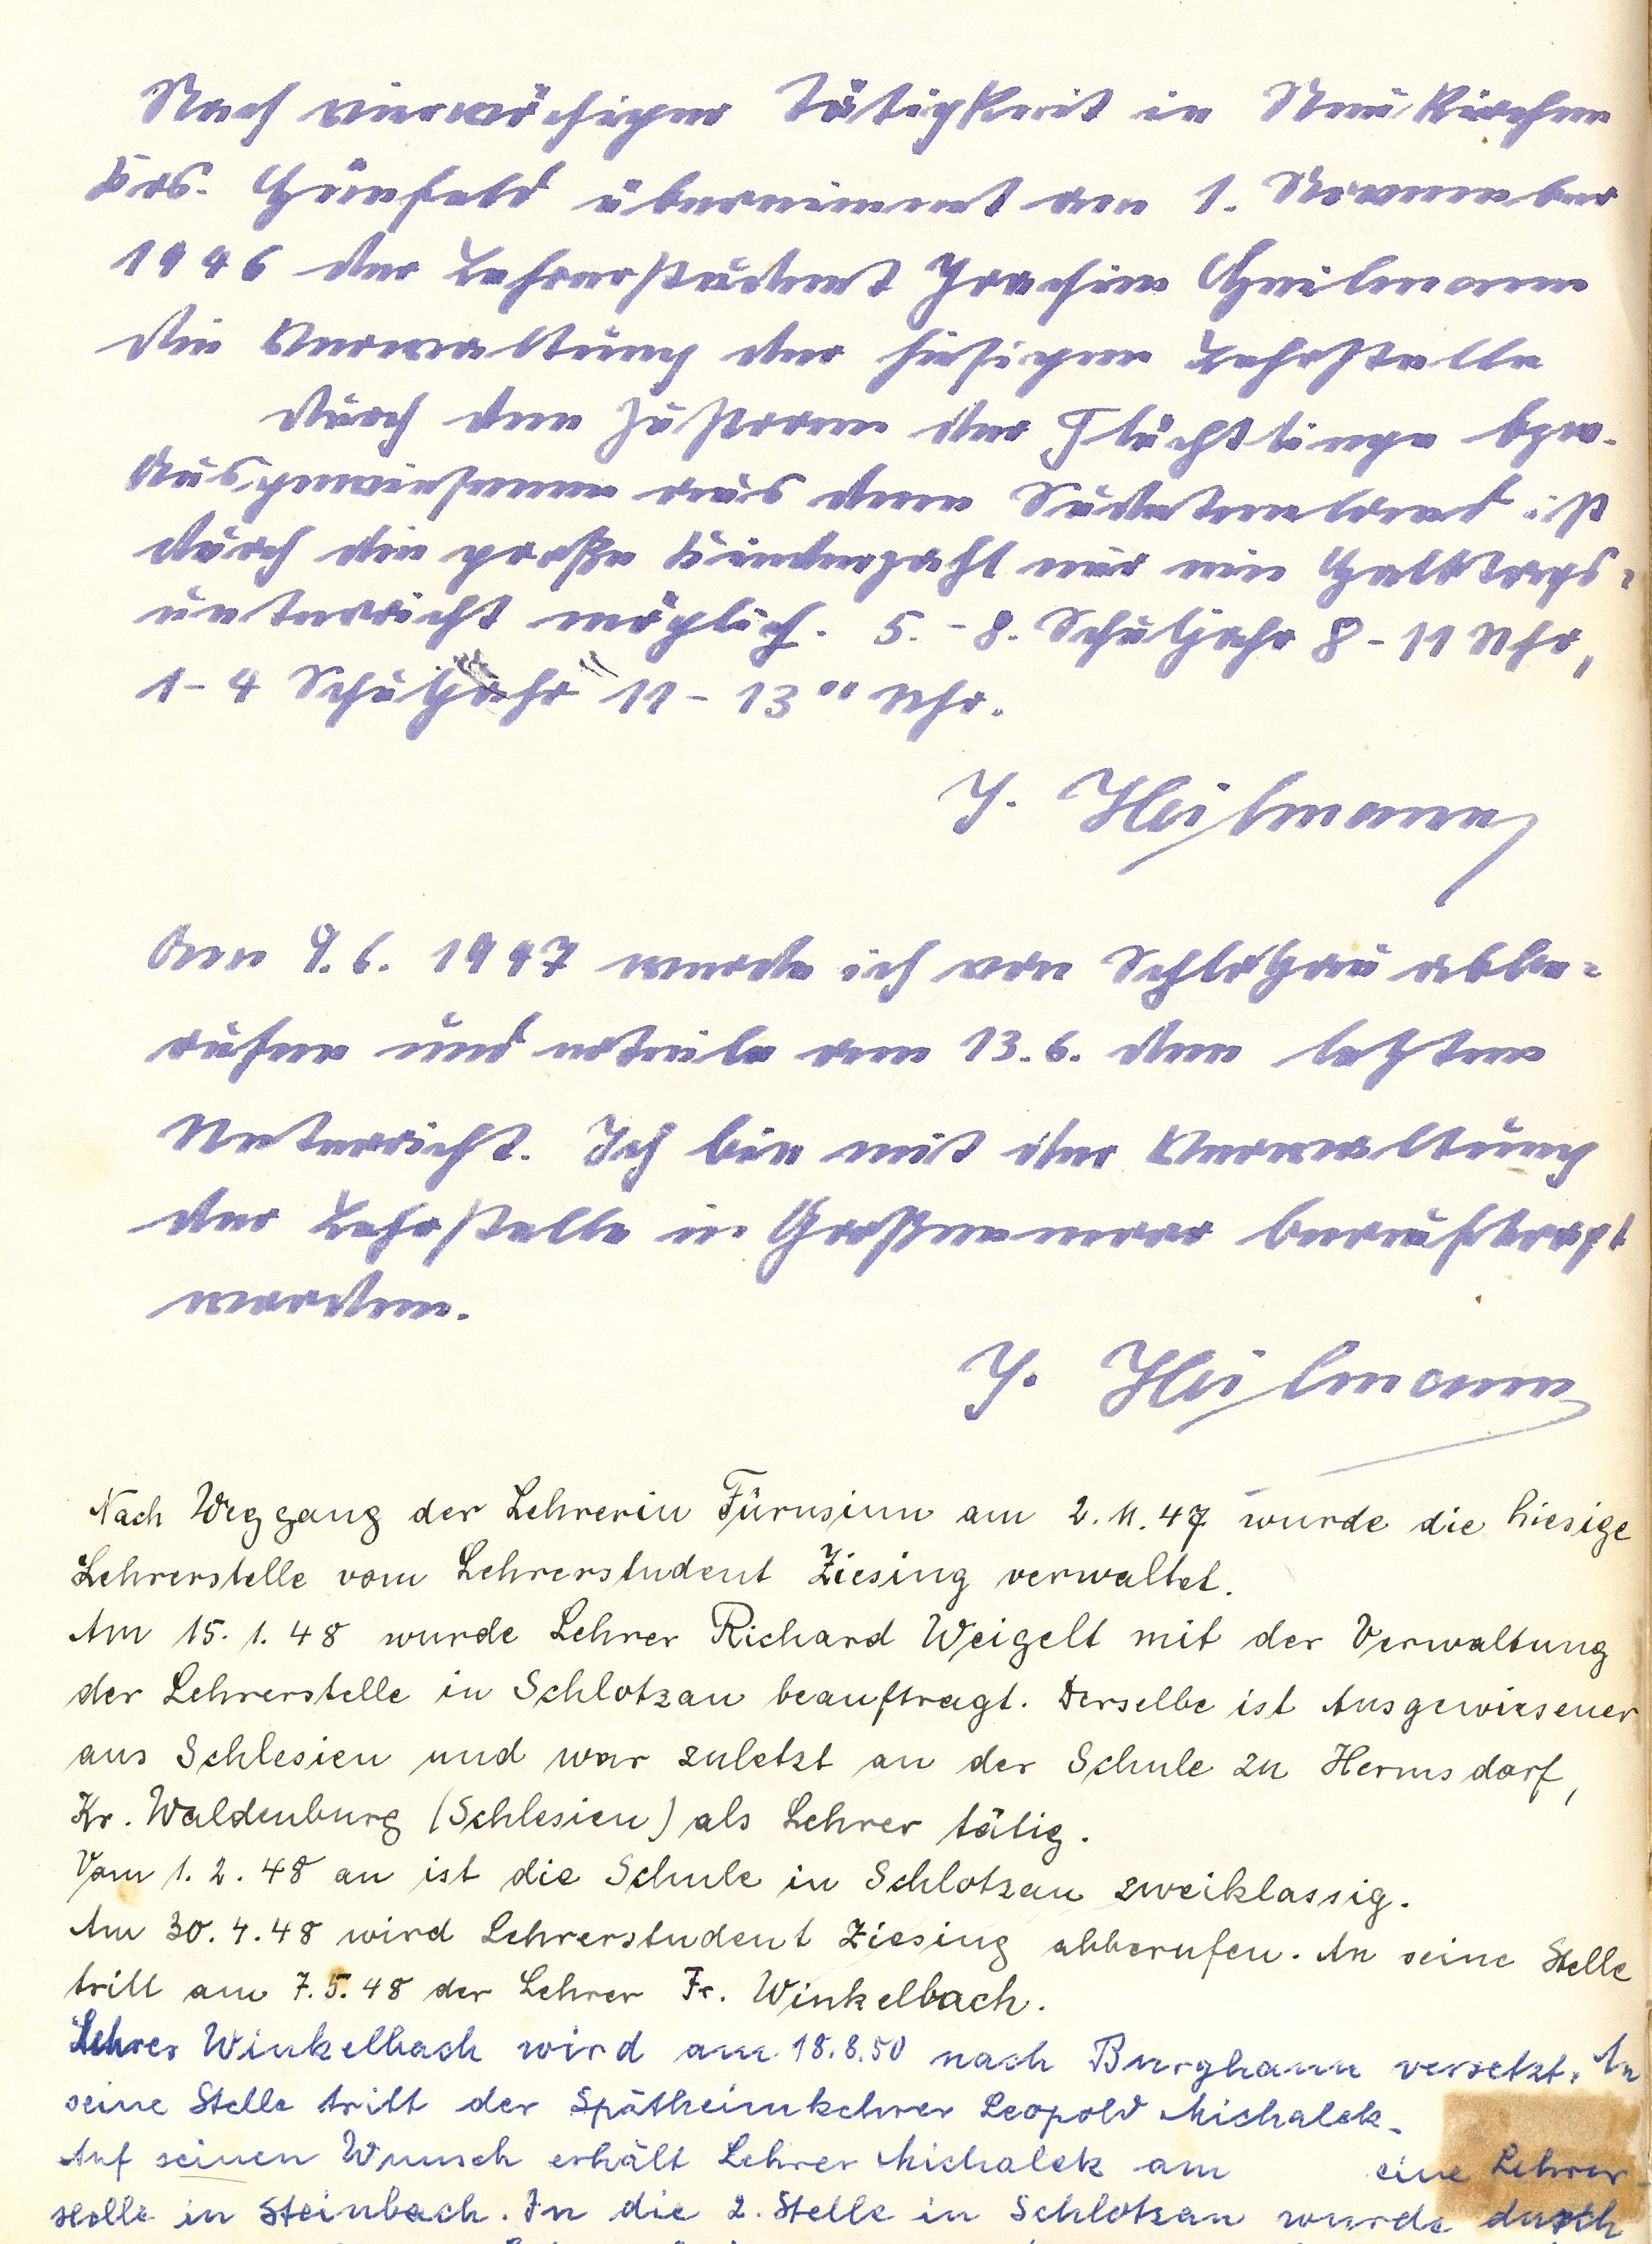 Nach vierwöchiger Tätigkeit in Neukirchen
Krs. Hünfeld übernimmt am 1. November
1946 der Lehrerstudent Joachim Heilmann
die Verwaltung der hiesigen Lehrstelle
Durch den Zustrom der Flüchtlinge bzw.
Ausgewiesenen aus dem Sudetenland ist
durch die große Kinderzahl nur ein Halbtags=
unterricht möglich. 5.-8. Schuljahr 8-11 Uhr,
1-4 Schuljahr 11-13⁰⁰ Uhr.
J. Heilmann
Am 9.6. 1947 wurde ich von Schlotzau abbe=
rufen und erteile am 13.6. den letzten
Unterricht. Ich bin mit der Verwaltung
der Lehrstelle in Großenmoor beauftragt
worden.
J. Heilmann
Nach Weggang der Lehrerin am 2.11.47 wurde die hiesige
Lehrerstelle vom Lehrerstudent Ziesing verwaltet.
Am 15.1.48 wurde Lehrer Richard Weigelt mit der Verwaltung
der Lehrerstelle in Schlotzau beauftragt. Derselbe ist Ausgewiesener
aus Schlesien und war zuletzt an der Schule zu Hermsdorf,
Kr. Waldenburg (Schlesien) als Lehrer tätig.
Vom 1.2.48 an ist die Schule in Schlotzau zweiklassig.
Am 30.4.48 wird Lehrerstudent Ziesing abberufen. An seine Stelle
tritt am 7.5.48 der Lehrer Fr. Winkelbach.
Lehrer Winkelbach wird am 18.8.50 nach Burghaun versetzt. An
seine Stelle tritt der Spätheimkehrer Leopold Michalek.
Auf seinen Wunsch erhält Lehrer Michalek am eine Lehrer
stelle in Steinbach. In die 2. Stelle in Schlotzau wurde durch